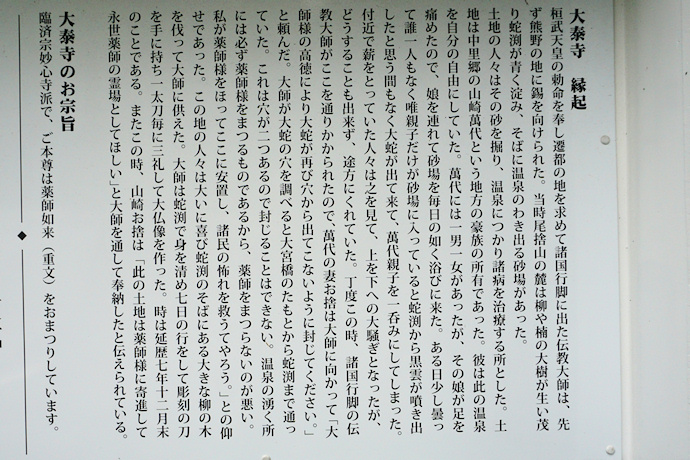 大泰寺 縁起
桓武天皇の勅命を奉し遷都の地を求めて諸国行脚に出た伝教大師は、先
ず熊野の地に錫を向けられた。当時尾捨山の麓は柳や楠の大樹が生い茂
り蛇渕が青く淀み、そばに温泉のわき出る砂場があった。
土地の人々はその砂を掘り、温泉につかり諸病を治療する所とした。土
地は中里郷の山崎萬代という地方の豪族の所有であった。彼は此の温泉
を自分の自由にしていた。萬代には一男一女があったが、その娘が足を
痛めたので、娘を連れて砂場を毎日の如く浴びに来た。ある日少し曇っ
て誰一人もなく唯親子だけが砂場に入っていると蛇渕から黒雲が噴き出
したと思う間もなく大蛇が出て来て、萬代親子を一呑みにしてしまった。
付近で薪をとっていた人々は之を見て、上を下への大騒ぎとなったが、
どうすることも出来ず、途方にくれていた。丁度この時、諸国行脚の伝
教大師がここを通りかかられたので、萬代の妻お捨は大師に向かって「大
師様の高徳により大蛇が再び穴から出てこないように封じてください。」
と頼んだ。大師が大蛇の穴を調べると大宮橋のたもとから蛇渕まで通っ
ていた。これは穴が二つあるので封じることはできない。温泉の湧く所
には必ず薬師様をまつるものであるから、薬師をまつらないのが悪い。
私が薬師様をほってここに安置し、諸民の怖れを救うてやろう。」との仰
せであった。この地の人々は大いに喜び蛇渕のそばにある大きな柳の木
を伐って大師に供えた。大師は蛇渕で身を清め七日の行をして彫刻の刀
を手に持ち一太刀毎に三礼して大仏像を作った。時は延歴七年十二月末
のことである。またこの時、山崎お捨は「此の土地は薬師様に寄進して
永世薬師の霊場としてほしい」と大師を通して奉納したと伝えられている。
大泰寺のお宗旨
臨済宗妙心寺派で、ご本尊は薬師如来（重文）をおまつりしています。